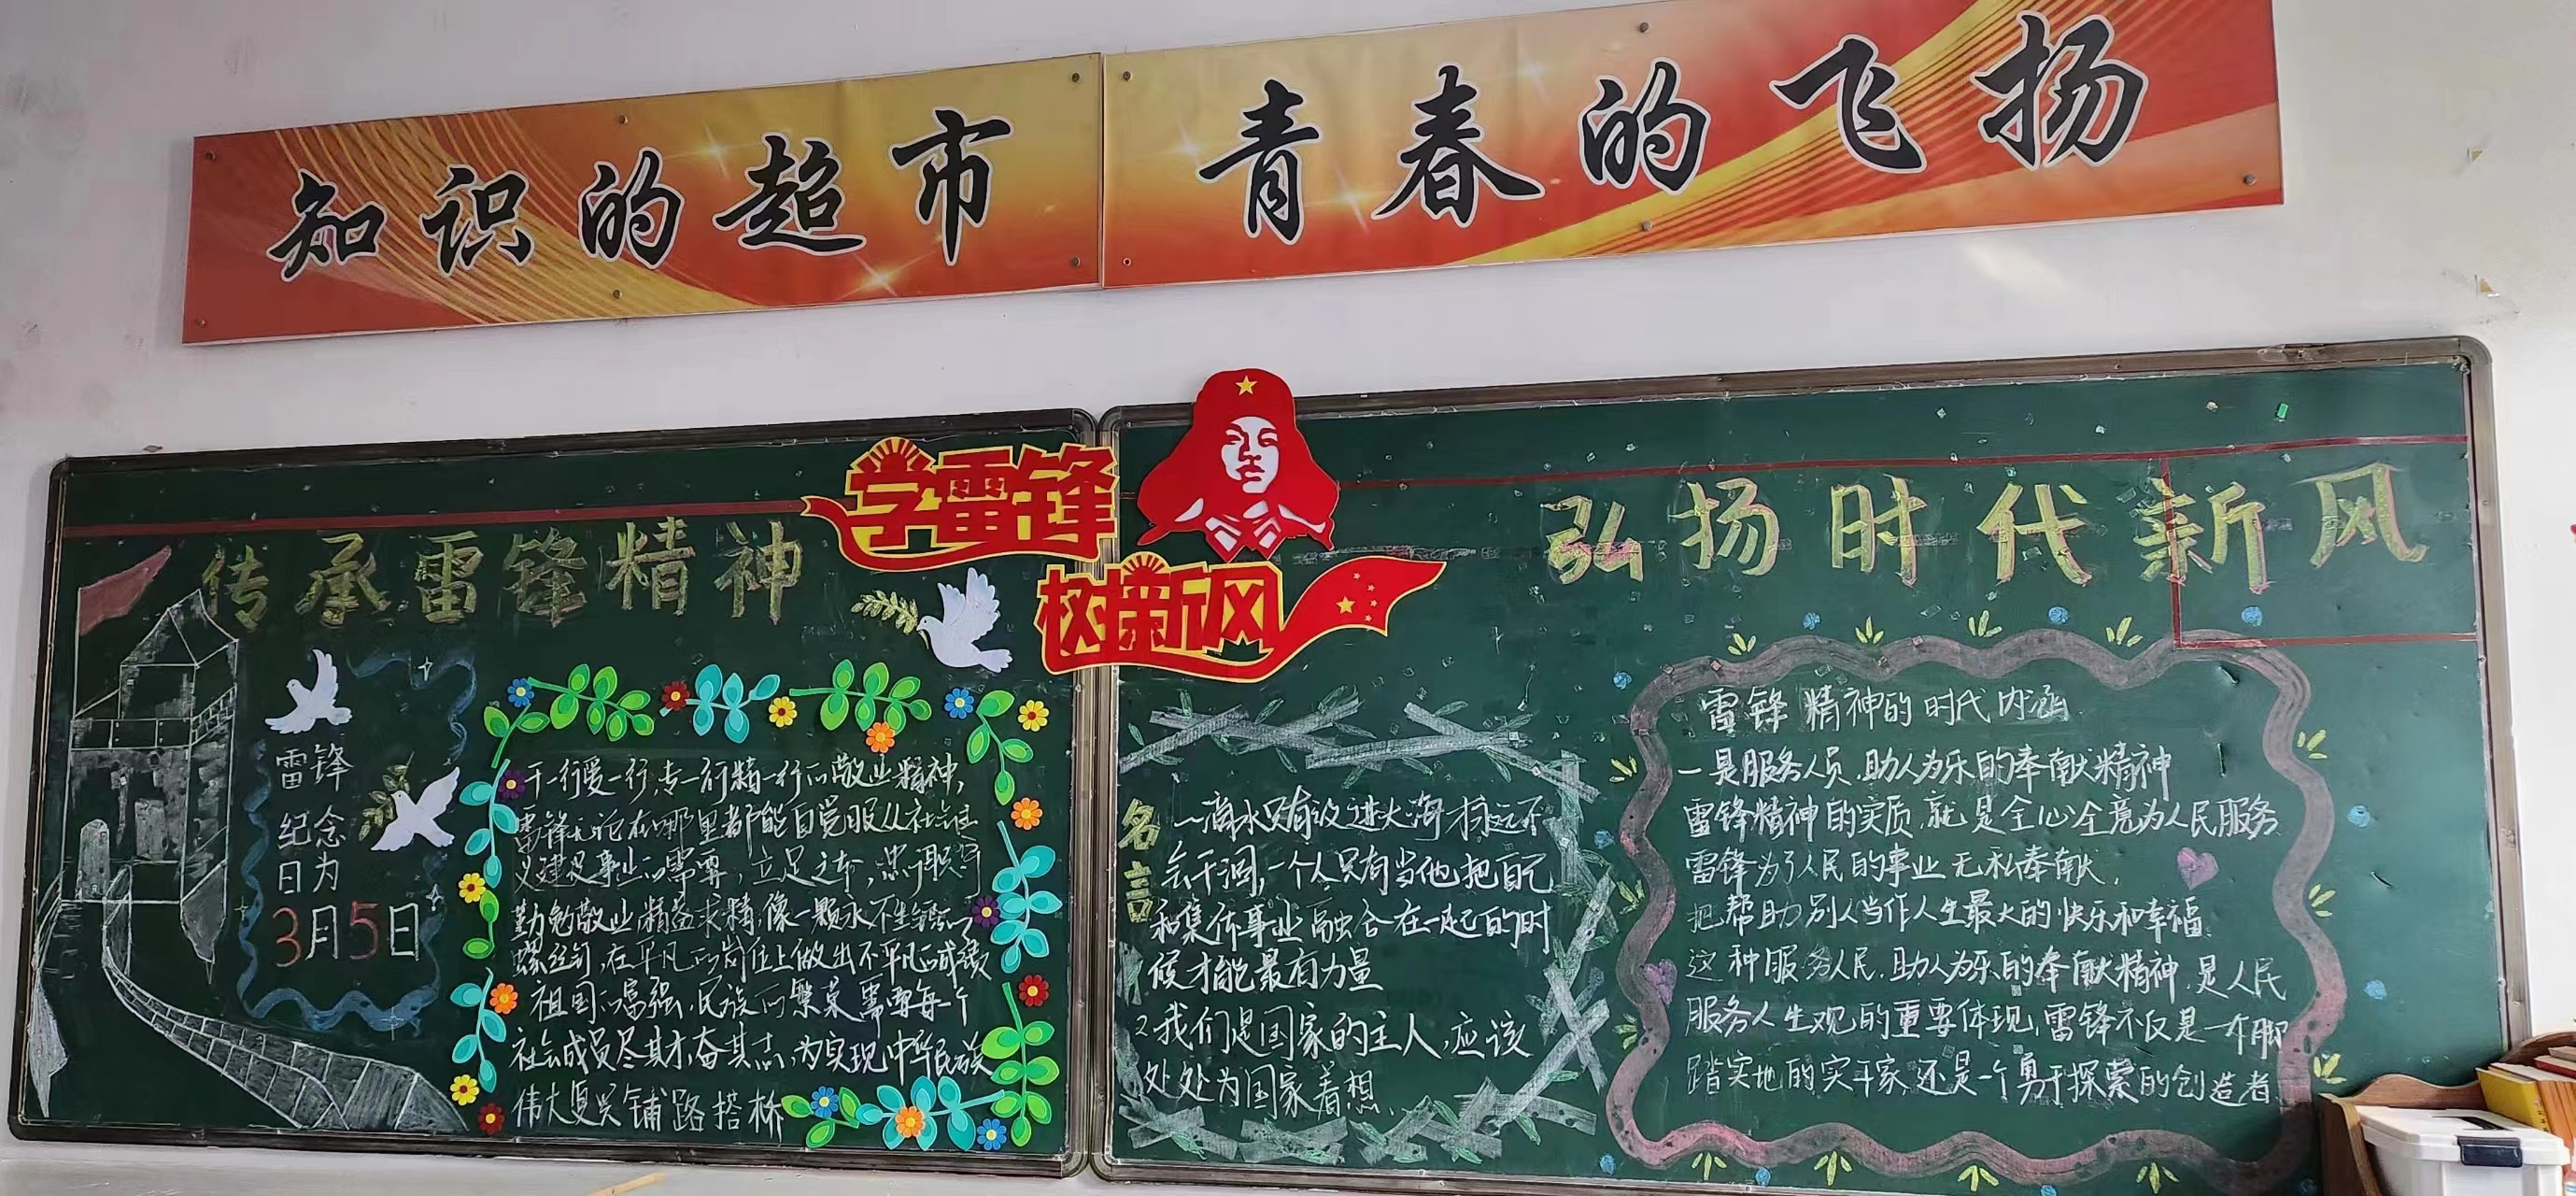 知识的超市 青春的飞扬
学雷锋
树新风
传承雷锋精神
弘扬时代新风
雷锋
纪念
日为
3月5日
干一行爱一行,专一行精一行的敬业精神,
雷锋无论在哪里都能自觉服从社会主
义建设事业的需要,立足本,忠于职守
勤勉敬业,精益求精,像一颗永不生锈的
螺丝钉,在平凡的岗位上做出不平凡的成绩
祖国的富强,民族的繁荣需要每一个
社会成员尽其才,奋其志,为实现中华民族
伟大复兴铺路搭桥
名言
一滴水只有放进大海才永远不
会干涸,一个人只有当他把自己
和集体事业融合在一起的时
候才能最有力量
2 我们是国家的主人,应该
处处为国家着想.
雷锋精神的时代内涵
一是服务人员,助人为乐的奉献精神
雷锋精神的实质,就是全心全意为人民服务
雷锋为了人民的事业无私奉献,
把帮助别人当作人生最大的快乐和幸福
这种服务人民,助人为乐的奉献精神,是人民
服务人生观的重要体现,雷锋不仅是一个脚
踏实地的实干家,还是一个勇于探索的创造者